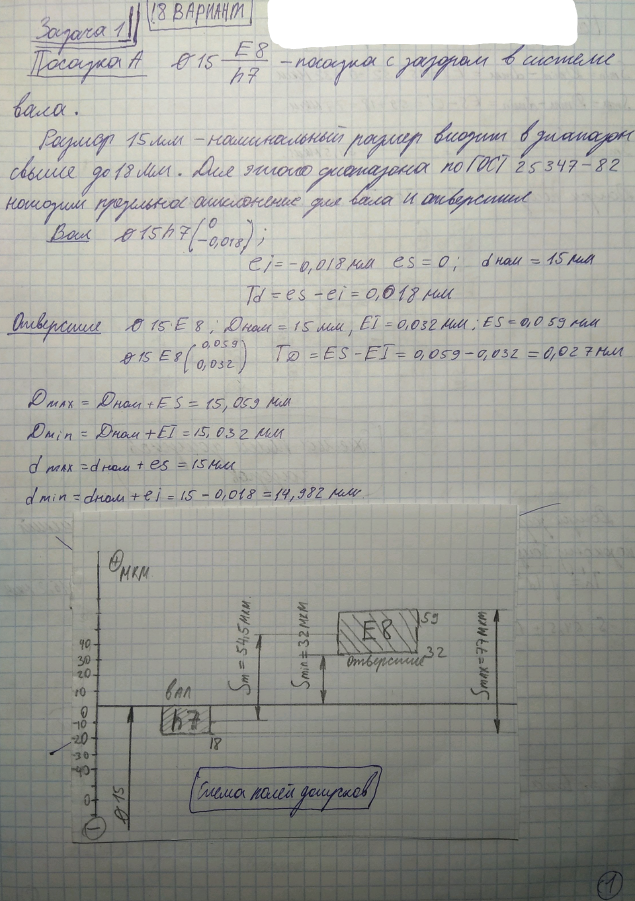 Задача 1 18 ВАРИАНТ
Посадка А ⌀15 E8/h7 – посадка с зазором в системе
вала.
Размер 15мм – номинальный размер входит в диапазон
свыше до 18 мм. Для этого диапазона по ГОСТ 25347-82
находим предельно отклонение для вала и отверстия
Вал ⌀15h7(0 -0,018);
ei = -0,018 мм es = 0; dном = 15мм
Td = es - ei = 0,018 мм
Отверстие ⌀15 E8; Dном = 15 мм, EI = 0,032 мм; ES = 0,059 мм
⌀15 E8(0,059 0,032) TD = ES - EI = 0,059 - 0,032 = 0,027 мм
Dmax = Dном + ES = 15,059 мм
Dmin = Dном + EI = 15,032 мм
dmax = dном + es = 15мм
dmin = dном + ei = 15 - 0,018 = 14,982 мм
+ мкм
40
30
20
10
0
10
20
30
40
0
–
⌀15
вал
h7
18
Sm = 54,5 мкм
Smin = 32 мкм
E8
59
32
отверстие
Smax = 77 мкм
Схема полей допусков
1